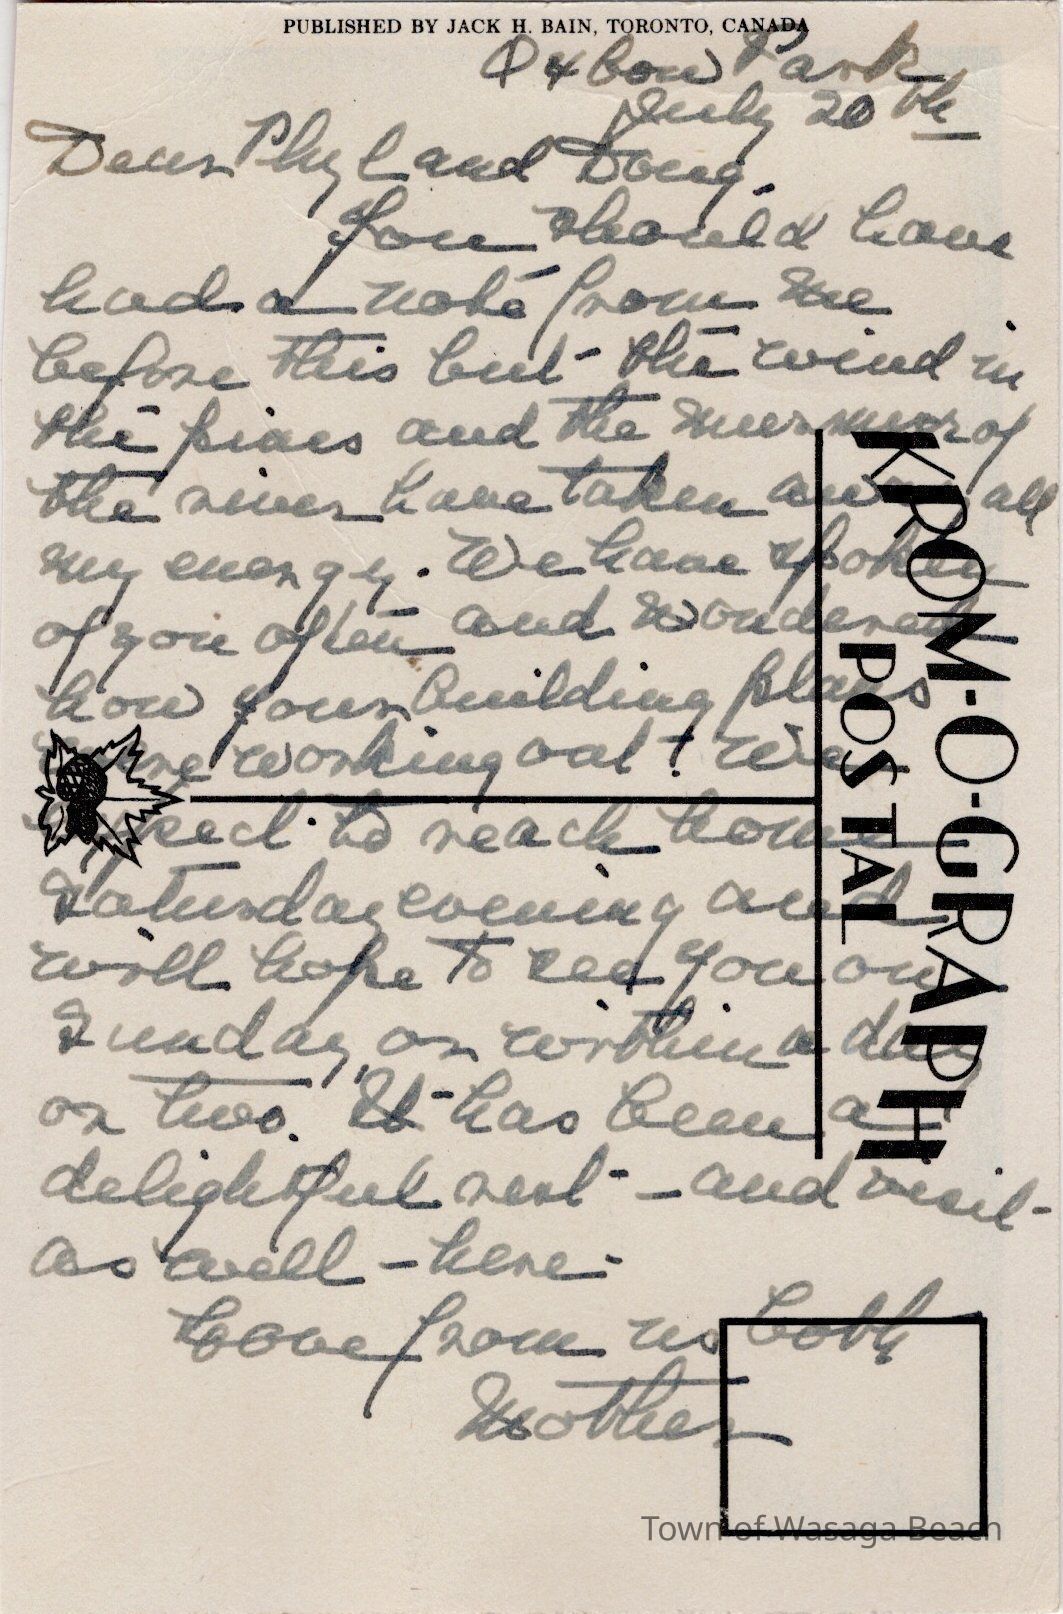 PUBLISHED BY JACK H. BAIN, TORONTO, CANADA
Oxbow Park
July 20th
Dear Phyl and Doug,
You should have
had a note from me
before this but the wind in
the pines and the murmur of
the river have taken away all
my energy. We have spoken
of you often and wondered
how your building plans
were working out! We
expect to reach home
Saturday evening and
will hope to see you on
Sunday, or within a day
or two. It has been a
delightful rest - and visit
as well - here.
Love from us both
Mother
KROM-O-GRAPH
POSTAL
Town of Wasaga Beach